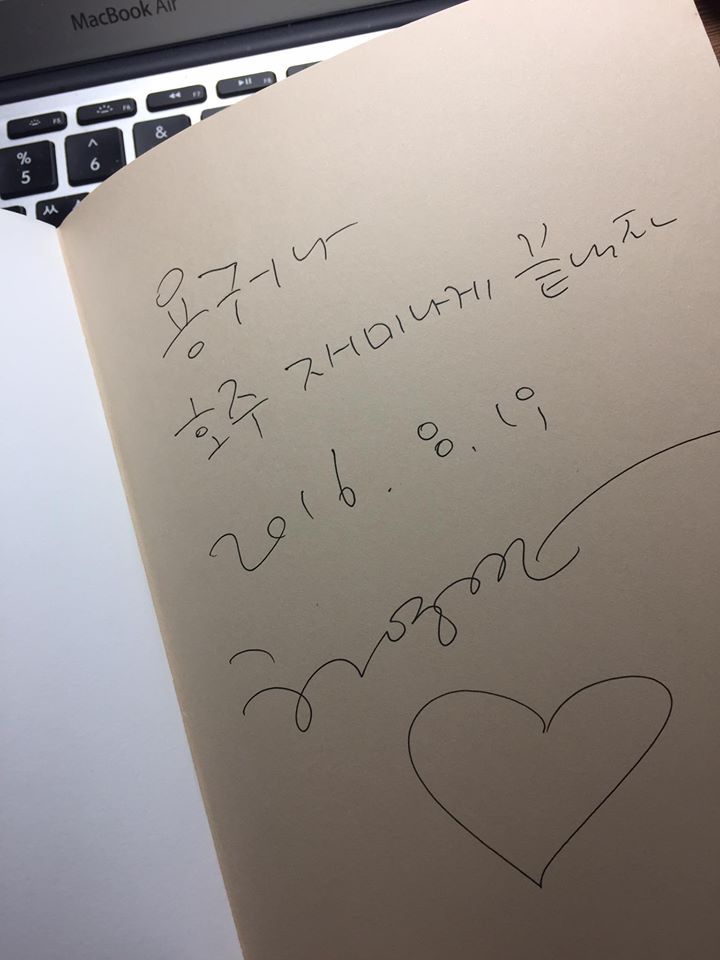 MacBook Air
F5 F6 F7 F8
% ^ &
5 6
용규나
호주 재미나게 끝내자
2016. 8. 19